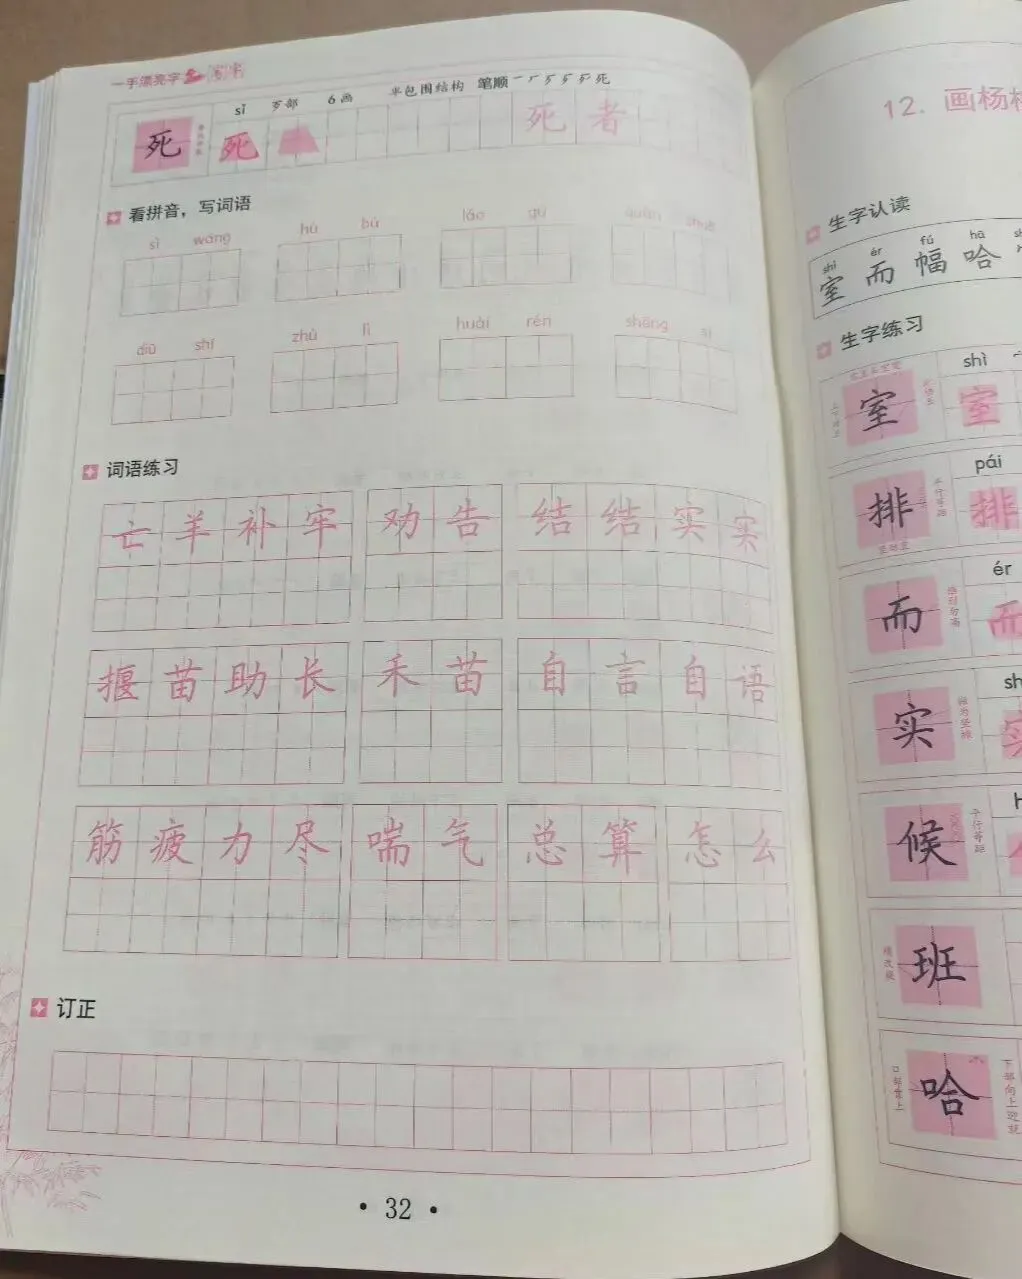 一手漂亮字
sǐ 歹部 6画 半包围结构 笔顺
死 死 死 者
看拼音，写词语
sǐ wáng hù bǔ láo gù quàn shuō
diū shī zhù lì huài rén shāng sǐ
词语练习
亡羊补牢 劝告 结结实实
揠苗助长 禾苗 自言自语
筋疲力尽 喘气 总算 怎么
订正
• 32 •
12. 画杨
生字认读
shì ér fú hā
室 而 幅 哈
生字练习
shì
室 室
pái
排 排
ér
而 而
sh
实
h
候
班
哈